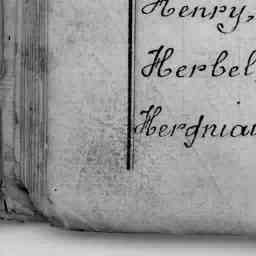 Henry,
Herbel,
Hergniau